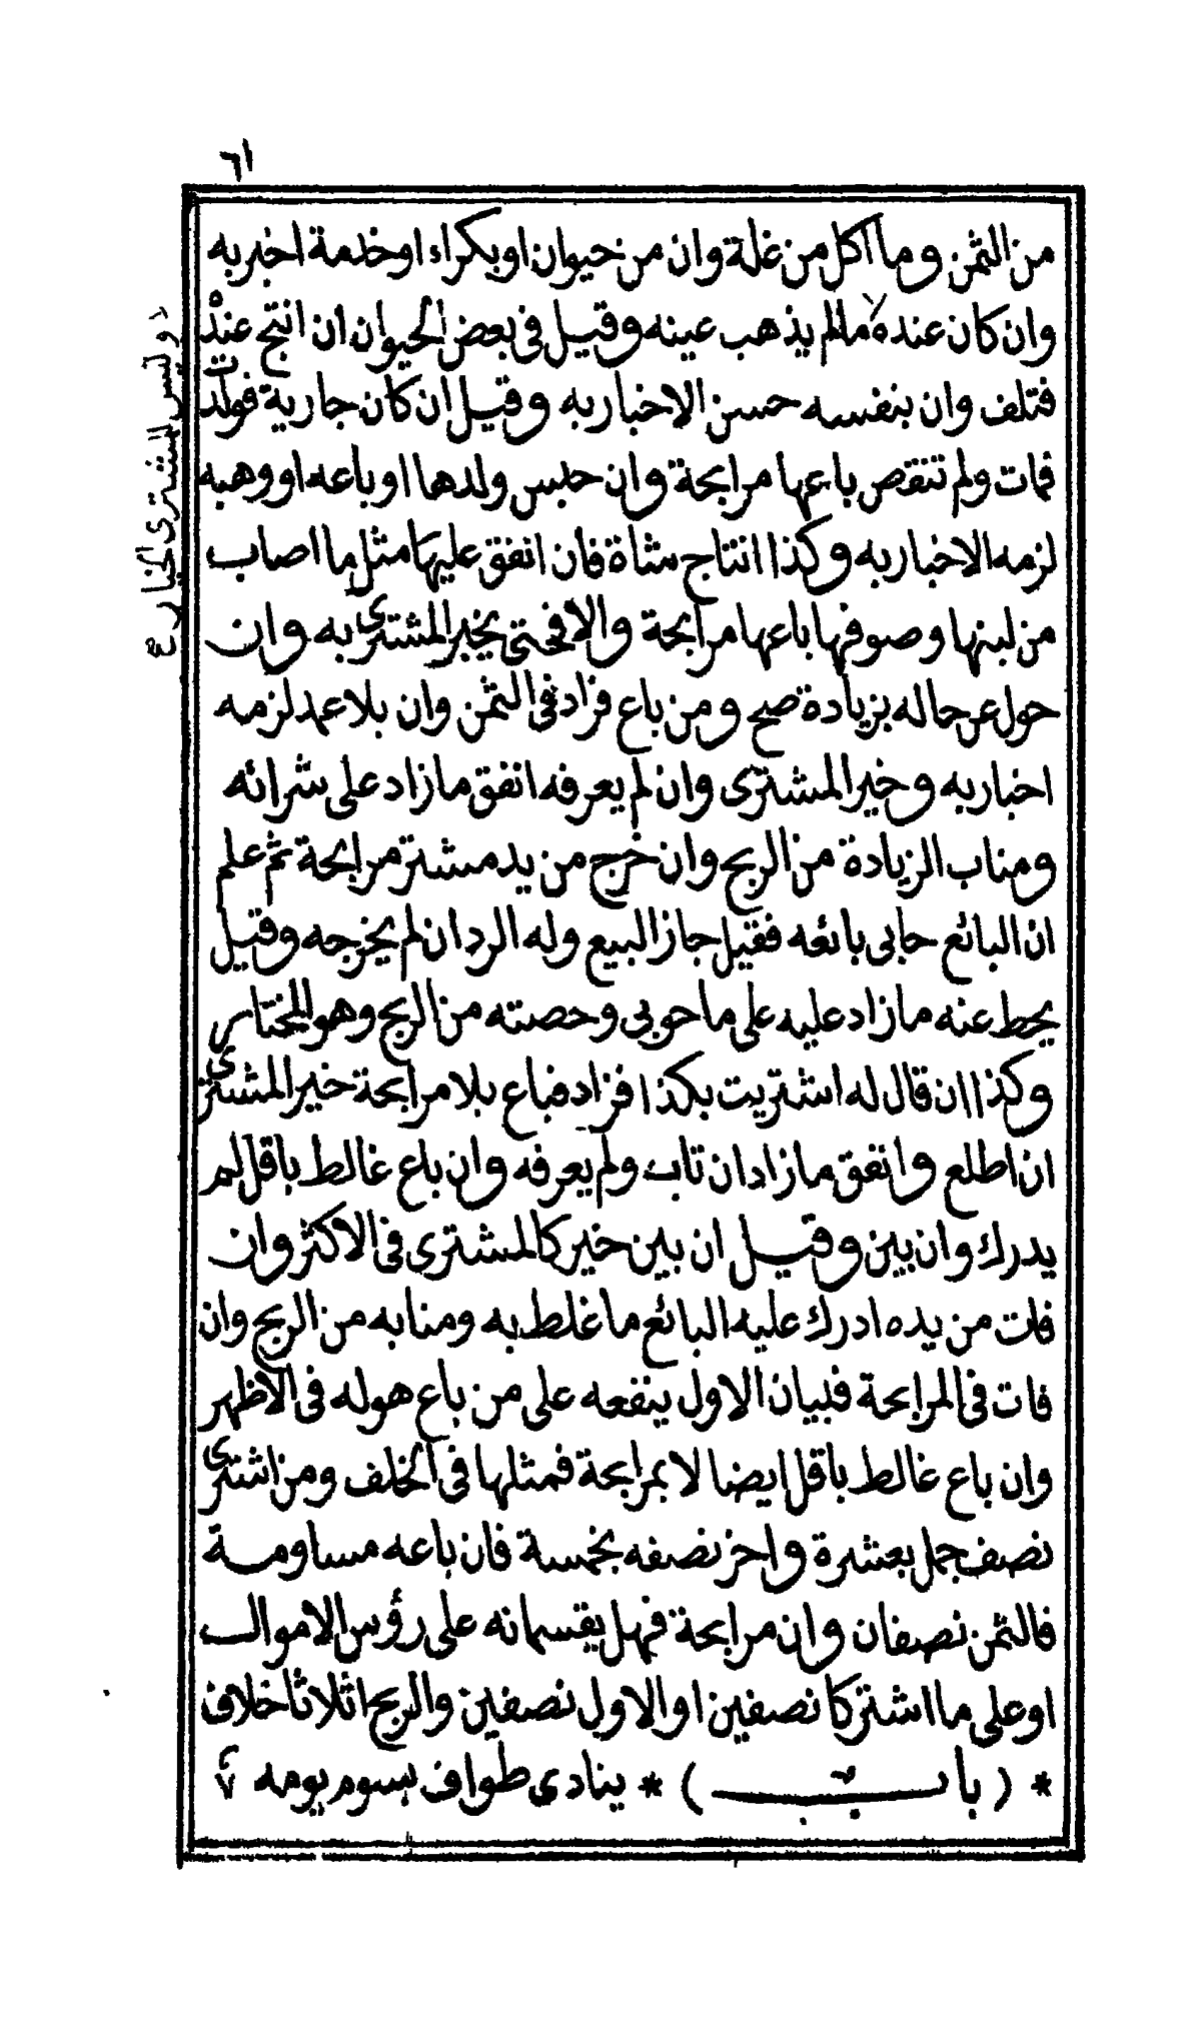 ٦١
من الثمن وما اكل من غلة وان من حيوان او بكراء او خدمة اخبر به
وان كان عنده لا ما لم يذهب عينه وقيل في بعض الحيوان ان انتج عنده
فتلف وان بنفسه حسن الاخبار به وقيل ان كان جارية فولدت
فمات ولم تنقص باعها مرابحة وان حبس ولدها او باعه او وهبه
لزمه الاخبار به وكذا انتاج شاة فان انفق عليها مثل ما اصاب
من لبنها وصوفها باعها مرابحة والا فحتى يخبر المشترى به وان
حول عن حاله بزيادة صح ومن باع فزاد في الثمن وان بلا عمد لزمه
اخبار به وخير المشترى وان لم يعرفه انفق ما زاد على شرائه
ومناب الزيادة من الربح وان خرج من يد مشتر مرابحة ثم علم
ان البائع حابى بائعه فقيل جاز البيع وله الرد ان لم يخرجه وقيل
يحط عنه ما زاد عليه على ما حوبى وحصته من الربح وهو المختار
وكذا ان قال له اشتريت بكذا فزاد فباع بلا مرابحة خير المشترى
ان اطلع وانفق ما زاد ان تاب ولم يعرفه وان باع غالط باقل لم
يدرك وان بين وقيل ان بين خير كالمشترى في الاكثر وان
فات من يده ادرك عليه البائع ما غلط به ومنابه من الربح وان
فات في المرابحة فبيان الاول ينفعه على من باع هو له في الاظهر
وان باع غالط باقل ايضا لا بمرابحة فمثلها في الخلف ومن اشترى
نصف جمل بعشرة واخر نصفه بخمسة فان باعه مساومة
فالثمن نصفان وان مرابحة فهل يقسمانه على رؤس الاموال
او على ما اشتركا نصفين او الاول نصفين والربح اثلاثا خلاف
* (باب) * ينادى طواف بسوم يومه
وليس للمشترى الخيار ع